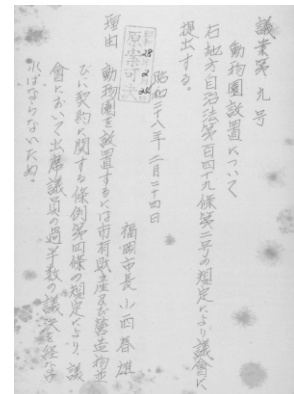 議案第九号
動物園設置について
右地方自治法第百四十九條第一号の規定により議會に
提出する。
昭和二十八年二月二十四日
原案可決
28 2 28
福岡市長 小西春雄
理由 動物園を設置するには市有財産及び營造物並
びに契約に関する條例第四條の規定により、議
會において出席議員の過半数の議決を経なけ
ればならないため。